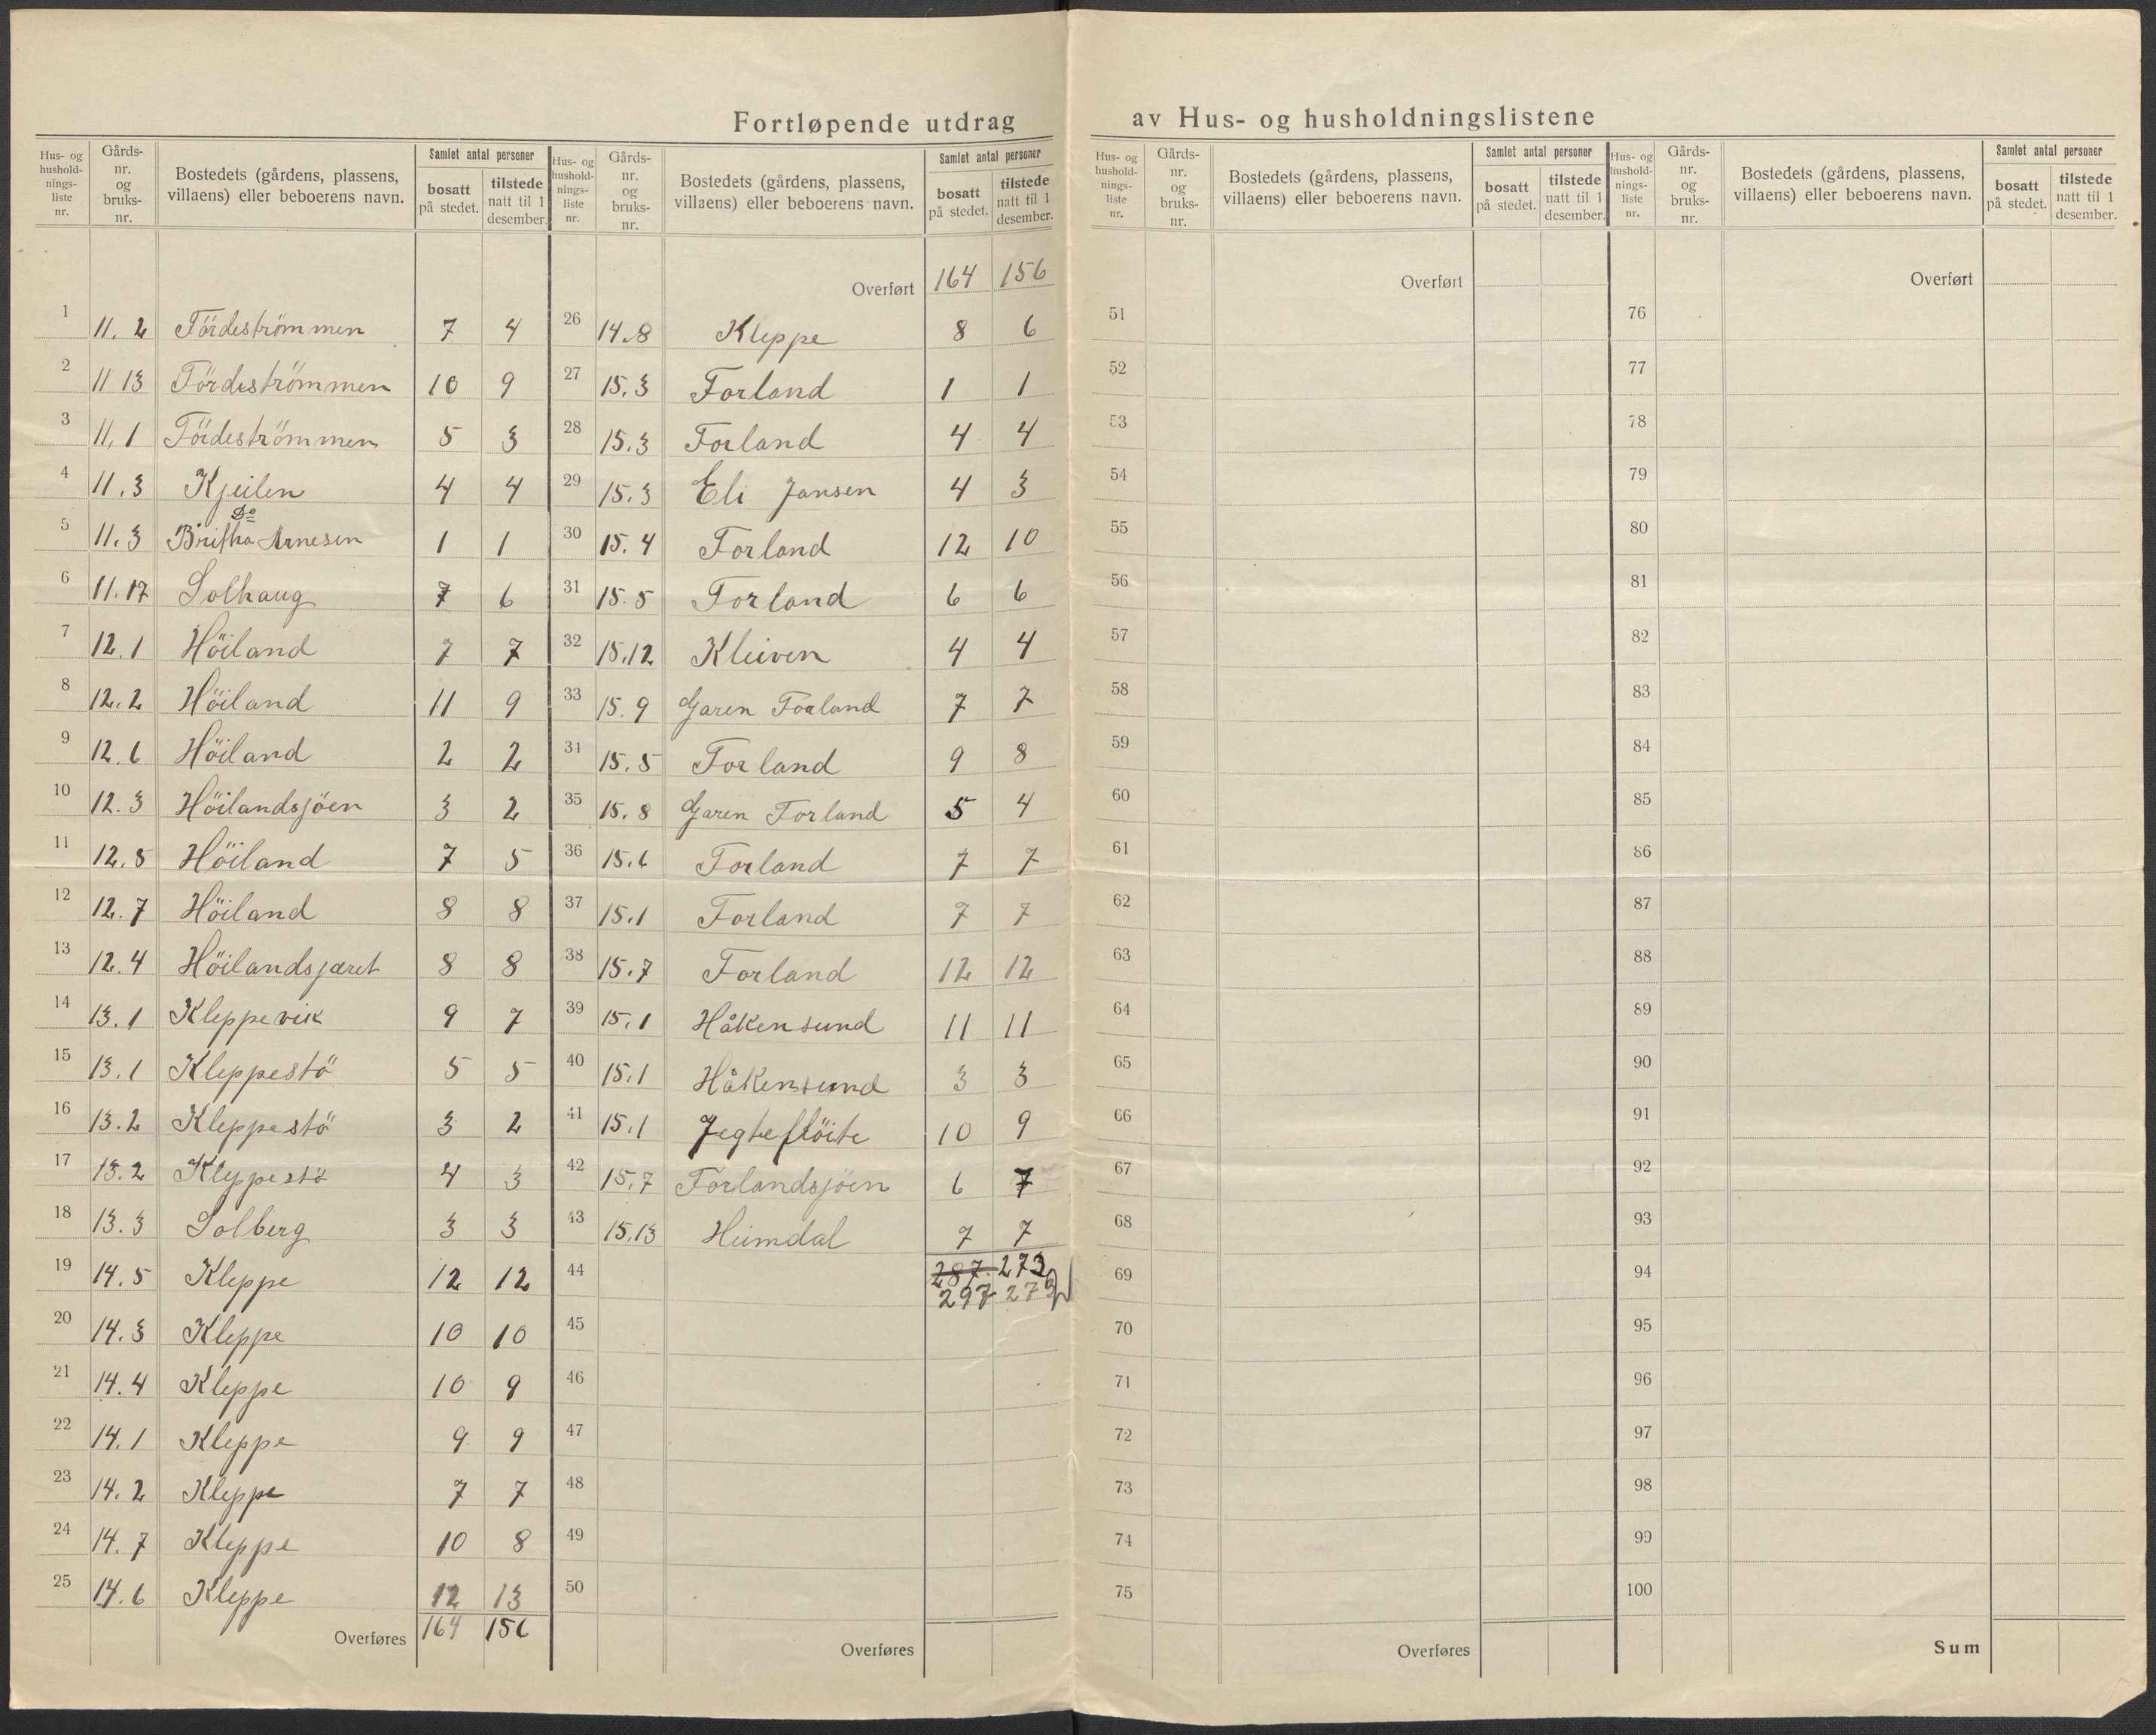 Fortløpende utdrag av Hus- og husholdningslistene
Hus- og hushold-nings-liste nr. | Gårds-nr. og bruks-nr. | Bostedets (gårdens, plassens, villaens) eller beboerens navn. | Samlet antal personer | bosatt på stedet. | tilstede natt til 1 desember.
1 11.2 Tördeströmmen 7 4
2 11 13 Tördeströmmen 10 9
3 11,1 Tördeströmmen 5 3
4 11.3 Kjeilen 4 4
Do
5 11.3 Britha Arnesen 1 1
6 11.17 Solhaug 7 6
7 12.1 Höiland 7 7
8 12.2 Höiland 11 9
9 12.6 Höiland 2 2
10 12.3 Höilandsjöen 3 2
11 12.5 Höiland 7 5
12 12.7 Höiland 8 8
13 12.4 Höilandsjæret 8 8
14 13.1 Kleppevik 9 7
15 13.1 Kleppestö 5 5
16 13.2 Kleppestö 3 2
17 13.2 Kleppestö 4 3
18 13.3 Solberg 3 3
19 14.5 Kleppe 12 12
20 14.3 Kleppe 10 10
21 14.4 Kleppe 10 9
22 14.1 Kleppe 9 9
23 14.2 Kleppe 7 7
24 14.7 Kleppe 10 8
25 14.6 Kleppe 12 13
Overføres 164 156
Hus- og hushold-nings-liste nr. | Gårds-nr. og bruks-nr. | Bostedets (gårdens, plassens, villaens) eller beboerens navn. | Samlet antal personer | bosatt på stedet. | tilstede natt til 1 desember.
Overført 164 156
26 14.8 Kleppe 8 6
27 15.3 Forland 1 1
28 15.3 Forland 4 4
29 15.3 Eli Jansen 4 3
30 15.4 Forland 12 10
31 15.5 Forland 6 6
32 15.12 Kleiven 4 4
33 15.9 Garen Forland 7 7
34 15.5 Forland 9 8
35 15.8 Garen Forland 5 4
36 15.6 Forland 7 7
37 15.1 Forland 7 7
38 15.7 Forland 12 12
39 15.1 Håkensund 11 11
40 15.1 Håkensund 3 3
41 15.1 Jegteflöite 10 9
42 15.7 Forlandsjöen 6 7
43 15.13 Heimdal 7 7
44 287 273
297 273
45
46
47
48
49
50
Overføres
Hus- og hushold-nings-liste nr. | Gårds-nr. og bruks-nr. | Bostedets (gårdens, plassens, villaens) eller beboerens navn. | Samlet antal personer | bosatt på stedet. | tilstede natt til 1 desember.
Overført
51
52
53
54
55
56
57
58
59
60
61
62
63
64
65
66
67
68
69
70
71
72
73
74
75
Overføres
Hus- og hushold-nings-liste nr. | Gårds-nr. og bruks-nr. | Bostedets (gårdens, plassens, villaens) eller beboerens navn. | Samlet antal personer | bosatt på stedet. | tilstede natt til 1 desember.
Overført
76
77
78
79
80
81
82
83
84
85
86
87
88
89
90
91
92
93
94
95
96
97
98
99
100
Sum